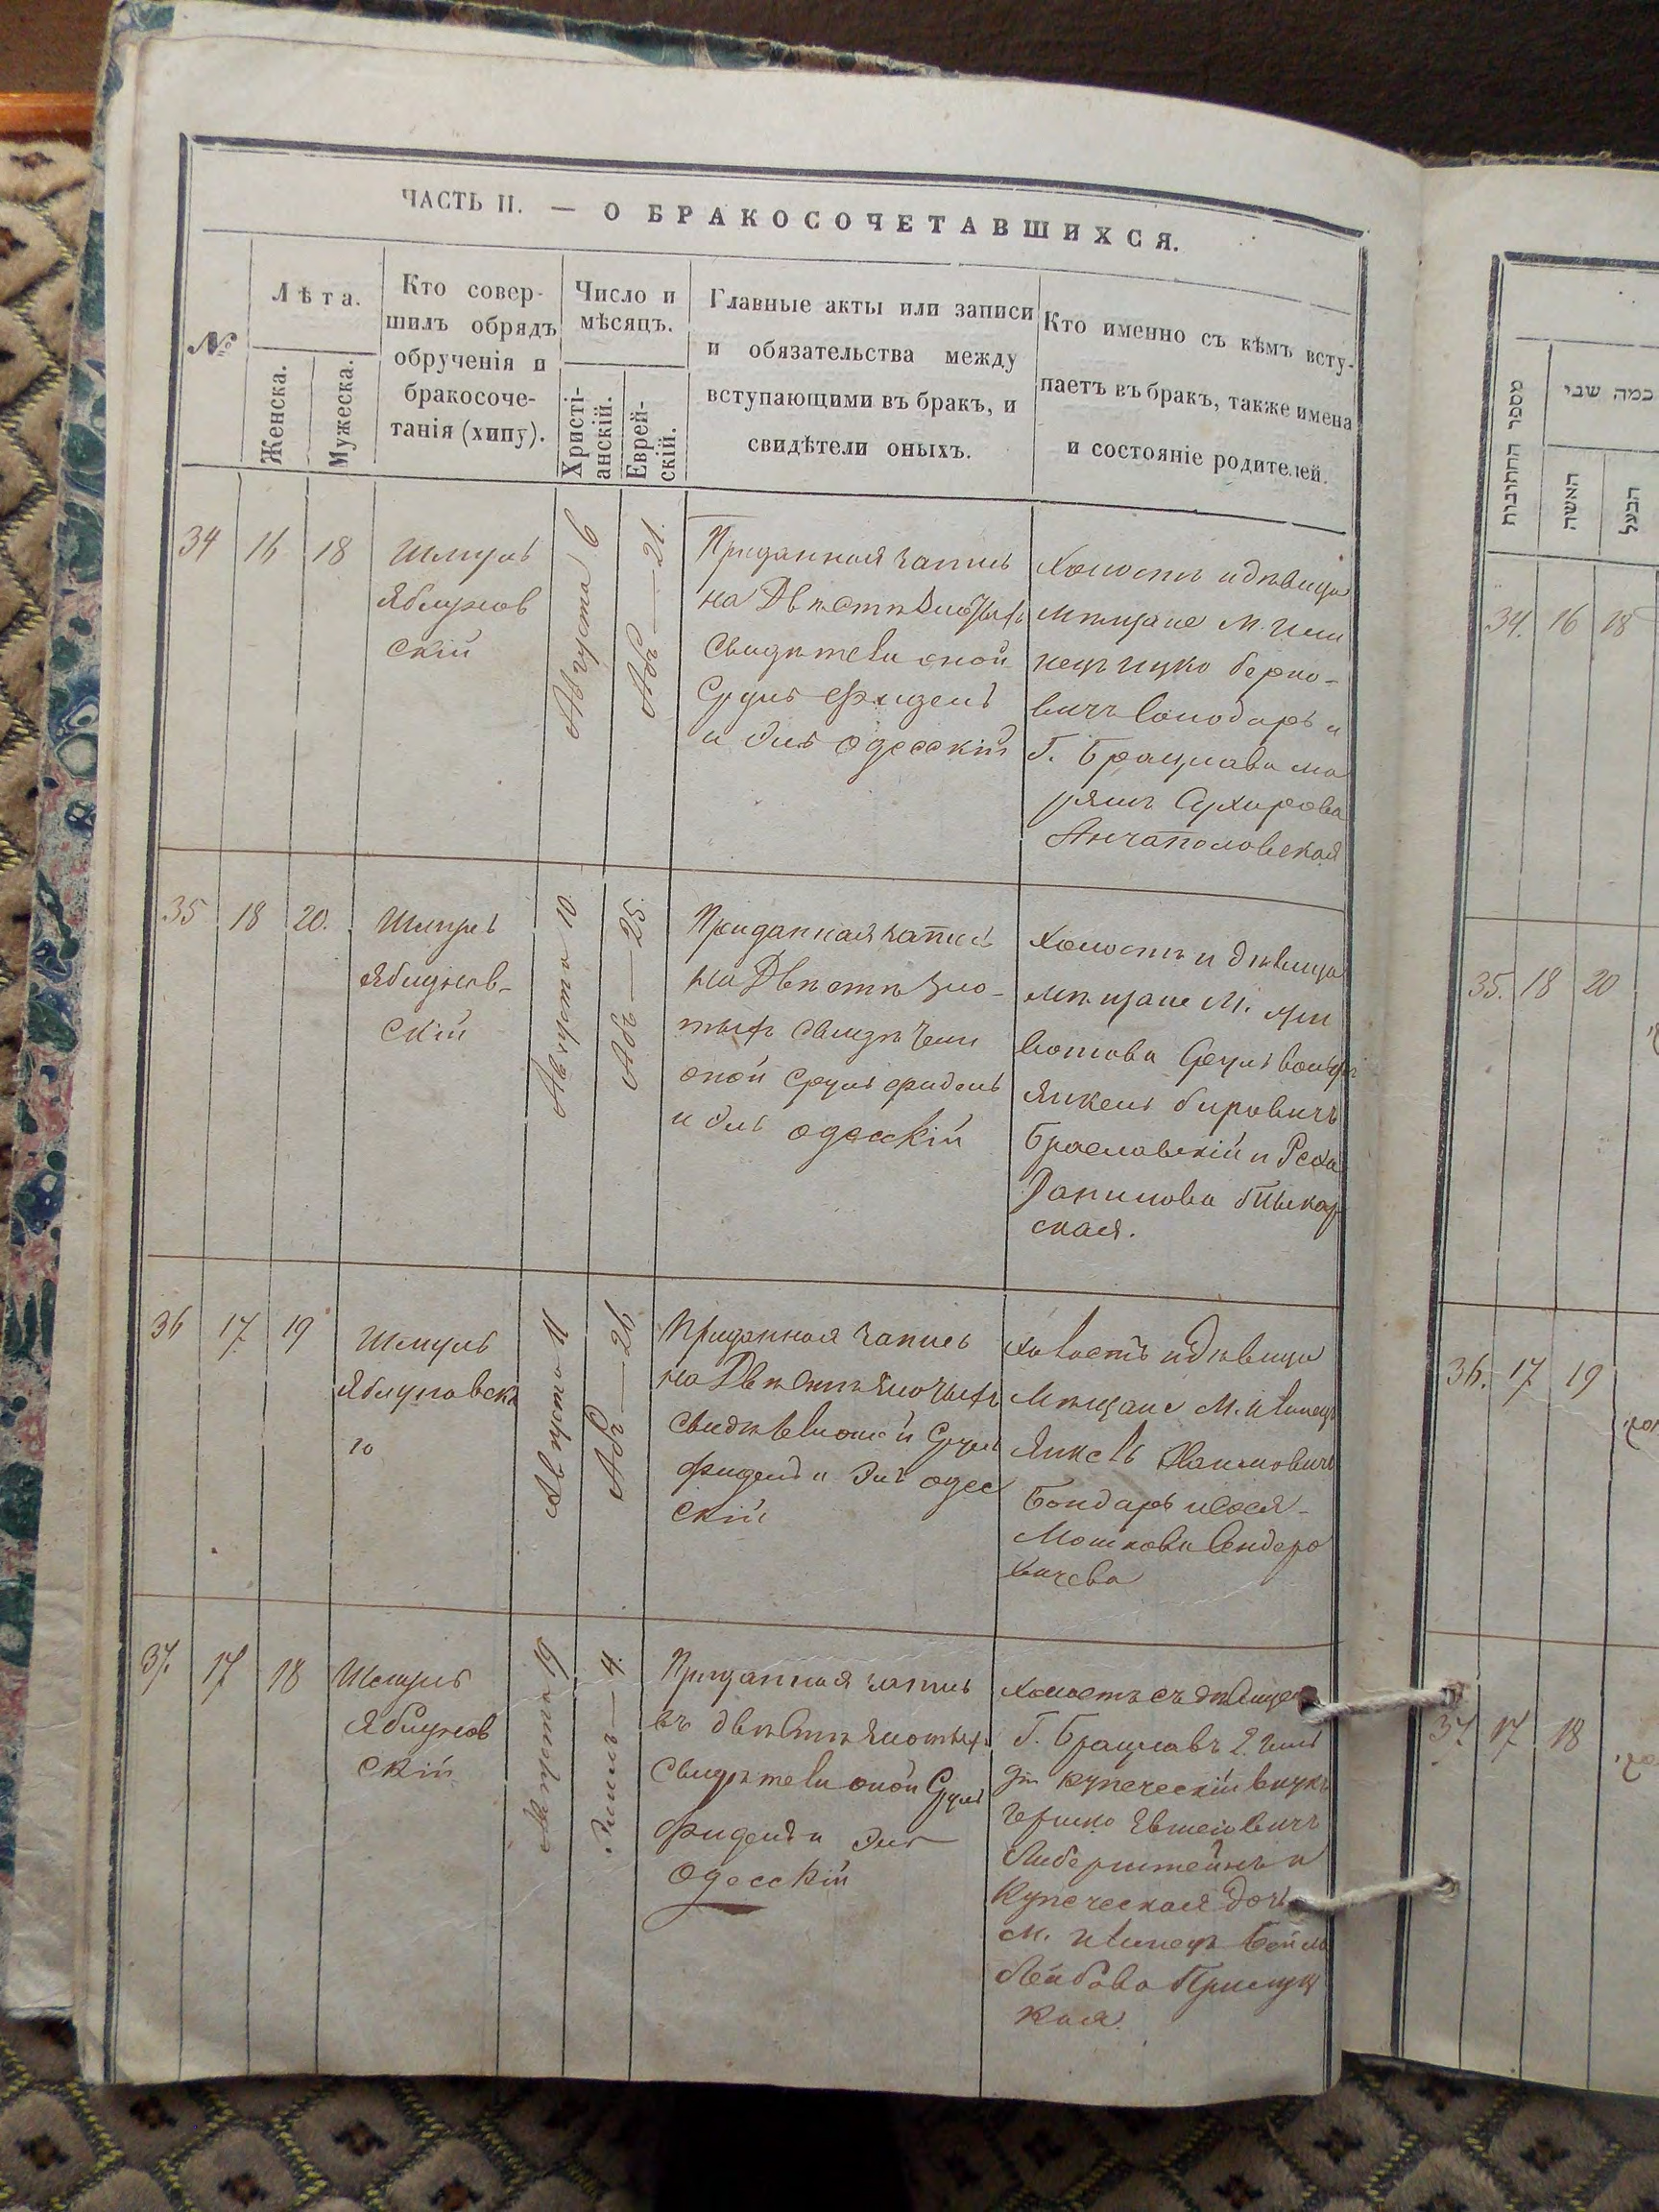 ЧАСТЬ II. — О БРАКОСОЧЕТАВШИХСЯ.
№
Лѣта.
Женска.
Мужеска.
Кто совер-
шилъ обрядъ
обрученія и
бракосоче-
танія (хипу).
Число и
мѣсяцъ.
Христі-
анскій.
Еврей-
скій.
Главные акты или записи
и обязательства между
вступающими въ бракъ, и
свидѣтели оныхъ.
Кто именно съ кѣмъ всту-
паетъ въ бракъ, также имена
и состояніе родителей.
34
16
18
Шмуль
Яблунов
скій
Августа 6
Абъ — 21.
Приданная запись
на Двѣсти злотыхъ
свидѣтели оной
Сруль Фидель
и Эль Одесскій
Холостъ и дѣвица
мѣщане М.
Ицко Берко-
вичъ и
Г. Брацлава Ма
рямъ
35
18
20.
Шмуль
Яблунов-
скій
Августа 10
Абъ — 25.
Приданная запись
на Двѣсти Зло-
тыхъ свидѣтели
оной Сруль Фидель
и Эль Одесскій
Холостъ и дѣвица
мѣщане М.
Сруль Вольфъ
Янкель Беровичъ
Браславскій и
ская.
36
17
19
Шмуль
Яблуновск
Августа 11
Абъ — 26
Приданная запись
на Двѣсти злотыхъ
свидѣтели оной Сруль
Фидель и Эль Одес
скій
Холостъ и дѣвица
Мѣщане М.
Янкель Хаимовичъ
Бондарь и Сося
Мошкова Сендеро
вичева
37.
17
18
Шмуль
Яблунов
скій
Августа 19
Элиль — 4.
Приданная запись
въ двѣсти злотыхъ
свидѣтели оной Сруль
Фидель и Эль
Одесскій
Холостъ съ дѣвицею
Г. Брацлавъ 2. Гиль
діи купеческій внукъ
Гершко
Либерштейнъ и
Купеческая дочь
М. Бейла
Лейбова Прилуц
кая.
מספר החתיבות
כמה שני
האשה
הבעל
34.
16
18
35.
18
20
36.
17
19
37.
17
18